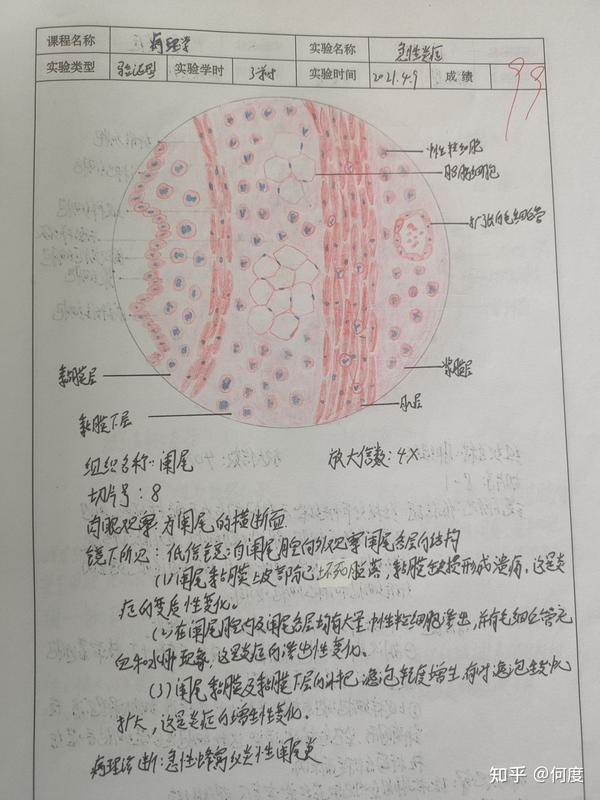 课程名称 病理学 实验名称 急性炎症
实验类型 验证型 实验学时 3学时 实验时间 2021.4.9 成绩 99
中性粒细胞
脂肪细胞
扩张的毛细血管
浆膜层
肌层
黏膜层
黏膜下层
组织名称:阑尾 放大倍数:4X
切片号:8
肉眼观察:为阑尾的横断面
镜下所见:低倍镜:自阑尾腔向外观察阑尾各层的结构
(1)阑尾黏膜上皮部分已坏死脱落,黏膜缺损形成溃疡,这是炎
症的变质性变化。
(2)在阑尾腔内及阑尾各层均有大量中性粒细胞渗出,并有毛细血管充
血和水肿现象,这是炎症的渗出性变化。
(3)阑尾黏膜及黏膜下层的淋巴滤泡轻度增生,有时滤泡生发中心
扩大,这是炎症的增生性变化。
病理诊断:急性蜂窝织炎性阑尾炎
知乎 @何度